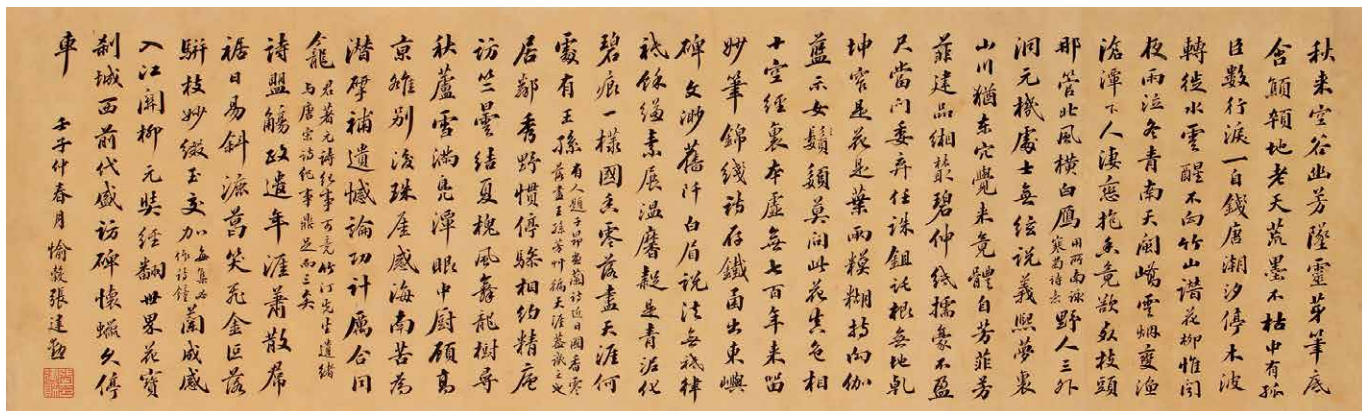 秋来空谷幽芳墜靈芽筆底
含顛顇地老天荒墨不枯中有孤
臣數行淚一自錢唐潮汐停木波
轉徙水雲醒不向竹山譜花柳惟聞
夜雨泣冬青南天閩嶠雲烟變漁
滄潭下人淒戀抱香竟欲死枝頭
那管北風橫白鴈用所南詠寒菊詩意野人三外
洞元機處士無絃說義熙夢裏
山川猶本穴覺来竟體自芳菲芳
菲建品緗碧仲紙擩豪不盈
尺當門委弃任誅鉏託根無地乾
坤窄是花是葉兩糢糊持向伽
藍示女鬚額莫問此花真色相
十空經裏本虛無七百年来留
妙筆錦綫詩存鐵函出東嶼
碑文渺舊阡白眉說法無袛律
袛餘縑素展温黁疑是青泥化
碧痕一樣國香零落盡天涯何
處有王孫有人題子昂畫蘭詩近日國香零落盡王孫芳艸徧天涯蓋諷之也
居鄰秀野慣停驂相約精廬
訪竺曇結夏槐風舞龍樹尋
秋蘆雪滿兠潭眼中廚顧高
京雒別後珠厓感海南苦為
潛孽補遺憾論功計屬合同
龕君著元詩紀事可竟竹汀先生遺緒与唐宋詩紀事鼎足而三矣
詩盟觴政遣年涯蕭散屏
裾日易斜漉蒿笑死金叵落
駢枝妙緻玉交加每集必作詩鐘蘭成感
入江關柳元奘經翻世界花寶
刹城西前代盛訪碑懷蠟久停
車
壬子仲春月愉轂張建